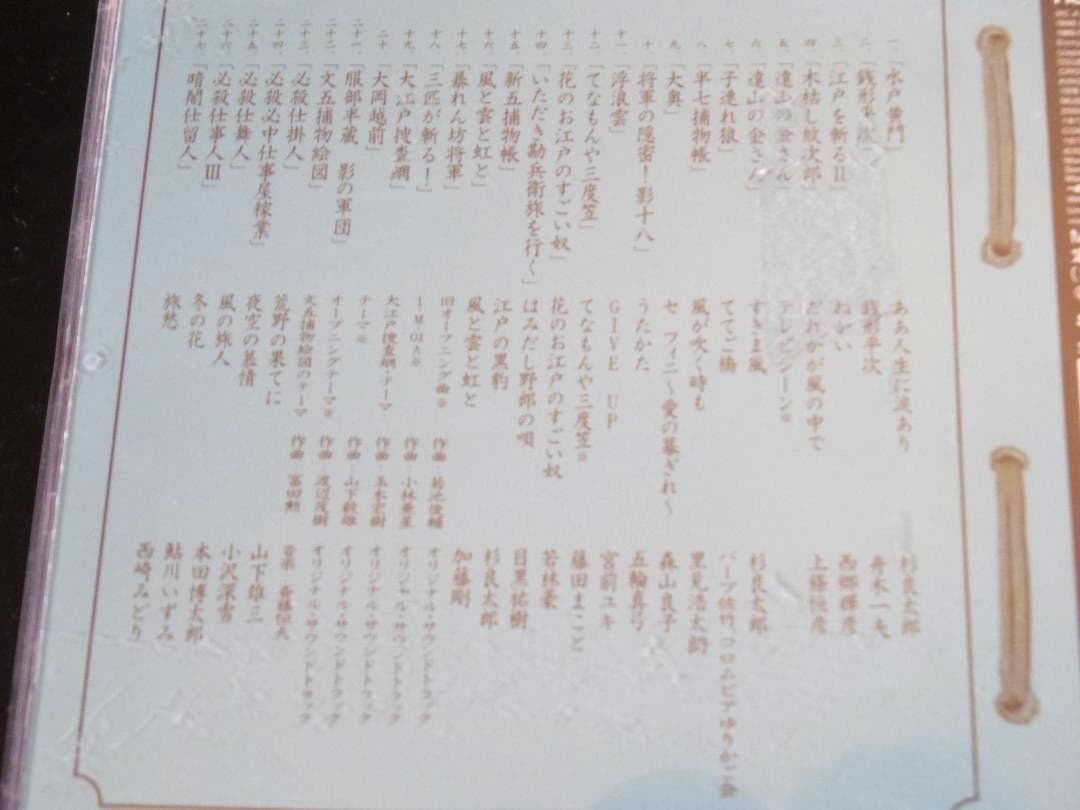 一 「水戸黄門」 ああ人生に涙あり 杉良太郎
二 「銭形平次」 銭形平次 舟木一夫
三 「江戸を斬るⅡ」 ねがい 西郷輝彦
四 「木枯し紋次郎」 だれかが風の中で 上條恒彦
五 「遠山の金さん」 テレビシーン※
六 「遠山の金さん」 すきま風 杉良太郎
七 「子連れ狼」 ててご橋 バーブ佐竹、コロムビアゆりかご会
八 「半七捕物帳」 風が吹く時も 里見浩太朗
九 「大奥」 セ フィニ〜愛の幕ぎれ〜 森山良子
十 「将軍の隠密!影十八」 うたかた 五輪真弓
十一 「浮浪雲」 GIVE UP 宮前ユキ
十二 「てなもんや三度笠」 てなもんや三度笠※ 藤田まこと
十三 「花のお江戸のすごい奴」 花のお江戸のすごい奴 若林豪
十四 「いただき勘兵衛旅を行く」 はみだし野郎の唄 目黒祐樹
十五 「新五捕物帳」 江戸の黒豹 杉良太郎
十六 「風と雲と虹と」 風と雲と虹と 加藤剛
十七 「暴れん坊将軍」 旧オープニング曲※ 作曲 菊池俊輔 オリジナル・サウンドトラック
十八 「三匹が斬る!」 I-M01A※ 作曲 小林亜星 オリジナル・サウンドトラック
十九 「大江戸捜査網」 大江戸捜査網・テーマ 作曲 玉木宏樹 オリジナル・サウンドトラック
二十 「大岡越前」 テーマ※ 作曲 山下毅雄 オリジナル・サウンドトラック
二十一 「服部半蔵 影の軍団」 オープニングテーマ※ 作曲 渡辺茂樹 オリジナル・サウンドトラック
二十二 「文五捕物絵図」 文五捕物絵図のテーマ 作曲 冨田勲 音楽 斎藤恒夫
二十三 「必殺仕掛人」 荒野の果てに 山下雄三
二十四 「必殺必中仕事屋稼業」 夜空の慕情 小沢深雪
二十五 「必殺仕舞人」 風の旅人 本田博太郎
二十六 「必殺仕事人Ⅲ」 冬の花 鮎川いずみ
二十七 「暗闇仕留人」 旅愁 西崎みどり